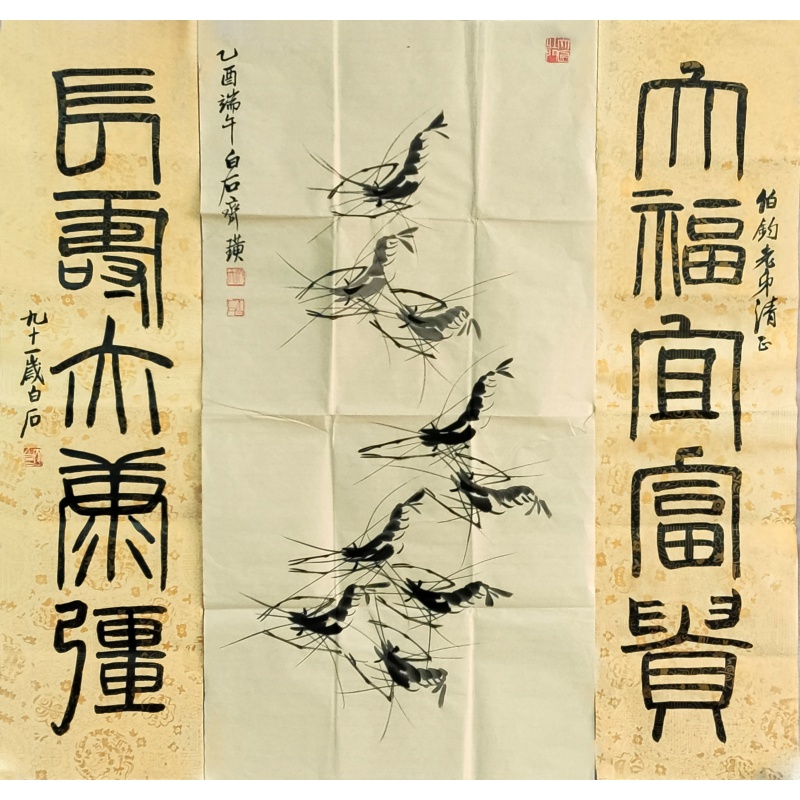 伯鈞老弟清正
大福宜富貴
乙酉端午白石齊璜
長壽亦康彊
九十一歲白石